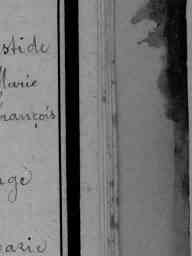 stide
Marie
François
ngé
arie